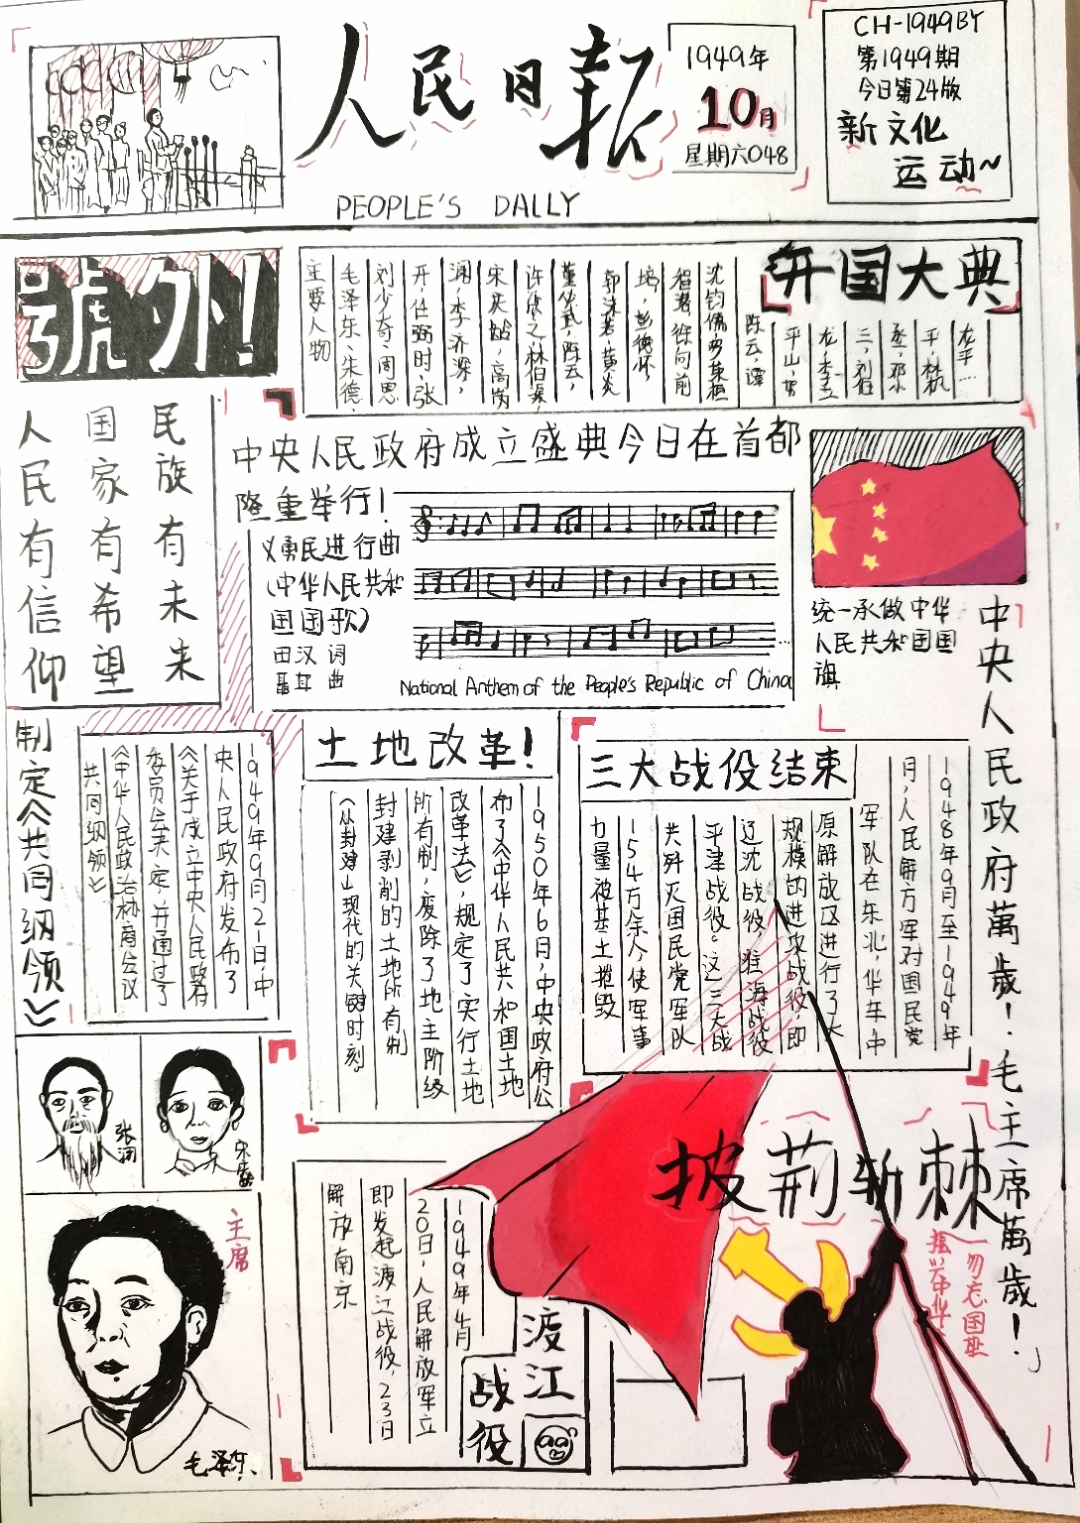 人民日报
PEOPLE'S DALLY
1949年
10月
星期六048
CH-1949BY
第1949期
今日第24版
新文化
运动~
號外!
开国大典
主要人物
毛泽东、朱德、
刘少奇、周恩
开,任弼时,张
澜,李济深,
宋庆龄,高岗
许德之,林伯渠,
董必武,陈云,
郭沫若,黄炎
培,彭德怀,
程潜,徐向前
沈钧儒,罗荣桓
陈云,谭
平山,贺
龙,李立
三,刘伯
丞,邓小
平,林枫
龙平…
民族有未来
国家有希望
人民有信仰
中央人民政府成立盛典今日在首都
隆重举行!
义勇民进行曲
(中华人民共和
国国歌)
田汉 词
聂耳 曲
National Anthem of the People's Republic of China
统一承做中华
人民共和国国
旗
中央人民政府萬歲!毛主席萬歲!」
制定《共同纲领》
1949年9月21日,中
央人民政府发布了
《关于成立中央人民政府
委员会决定,并通过了
《中华人民政治协商会议
共同纲领》
土地改革!
1950年6月,中央政府公
布了《中华人民共和国土地
改革法》,规定了实行土地
所有制,废除了地主阶级
封建剥削的土地所有制
《从封建山现代的关键时刻
三大战役结束
1948年9月至1949年
月,人民解方军对国民党
军队在东北,华车中
原解放区进行了大
规模的进攻战役即
辽沈战役,淮海战役
平津战役。这三大战
共歼灭国民党军队
154万余人,使军事
力量被基土摧毁
张澜
宋庆龄
主席
毛泽东、
1949年4月
20日,人民解放军立
即发起渡江战役,23日
解放南京
渡江
战役
披荆斩棘
勿忘国耻
振兴中华